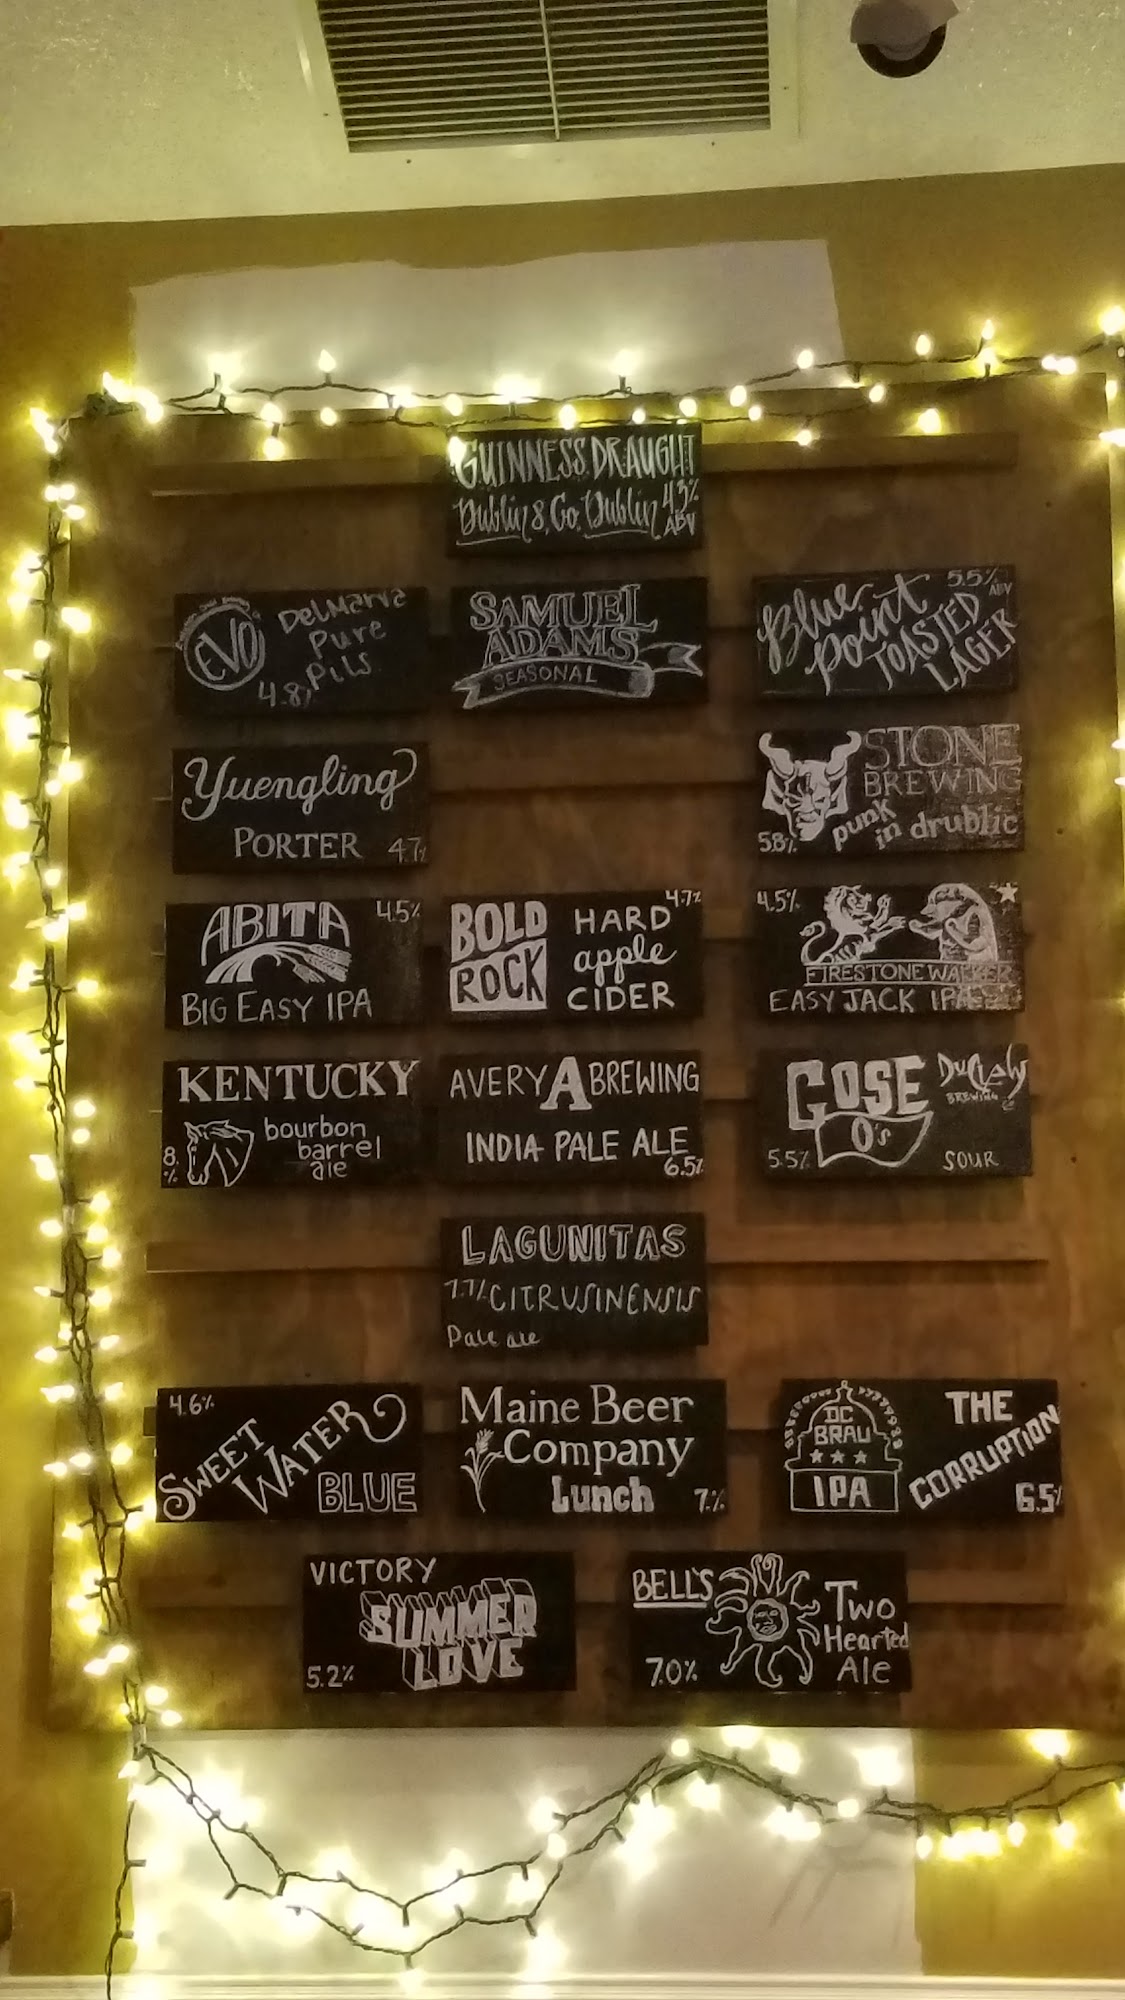 GUINNESS DRAUGHT
Dublin & Co. Dublin 4.3%
ABV
EVO
DelMarva
Pure
Pils
4.8%
SAMUEL
ADAMS
SEASONAL
Blue
point
5.5%
ABV
TOASTED
LAGER
Yuengling
PORTER 4.7%
STONE
BREWING
punk
in drublic
5.8%
ABITA 4.5%
BIG EASY IPA
BOLD
ROCK
HARD
apple
CIDER
4.7%
4.5%
FIRESTONE WALKER
EASY JACK IPA
KENTUCKY
bourbon
barrel
ale
8.%
AVERY A BREWING
INDIA PALE ALE
6.5%
GOSE
O's
5.5%
DuClaw
BREWING
SOUR
LAGUNITAS
7.7% CITRUSINENSIS
Pale ale
4.6%
SWEET
WATER
BLUE
Maine Beer
Company
Lunch 7.%
DC
BRAU
IPA
THE
CORRUPTION
6.5%
VICTORY
SUMMER
LOVE
5.2%
BELL'S
7.0%
Two
Hearted
Ale